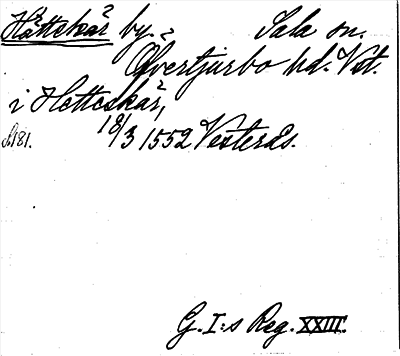 Hättekär by. Sala sn.
Övertjurbo hd. Vst.
i Hetteskär,
S. 181. 18/3 1552 Vesterås.
G. I:s Reg. XXIII.